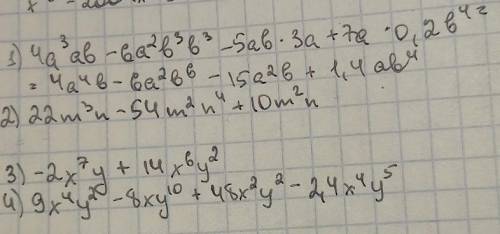 1) 4a³ab - 6a²b³b³ - 5ab · 3a + 7a · 0,2b⁴ =
= 4a⁴b - 6a²b⁶ - 15a²b + 1,4ab⁴
2) 22m³n - 54m²n⁴ + 10m²n
3) -2x⁷y + 14x⁶y²
4) 9x⁴y² - 8xy¹⁰ + 48x²y² - 2,4x⁴y⁵